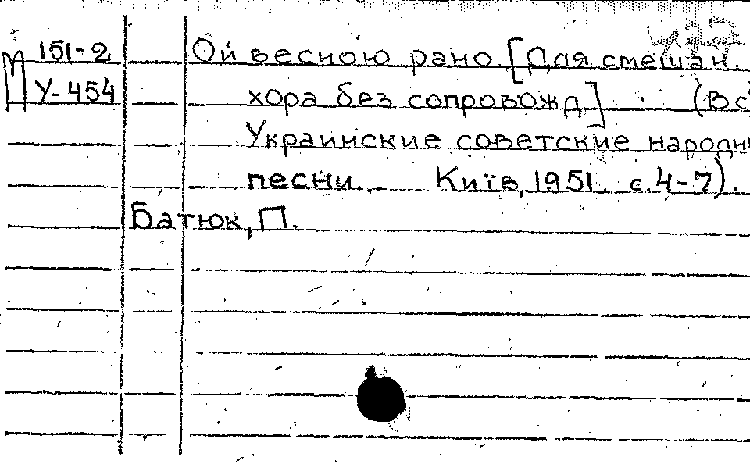 П 151-2
У-454
Ой весною рано. [Для смешан.
хора без сопровожд] . (В сб
Украинские советские народн
песни. Київ, 1951. с. 4-7).
Батюк, П.